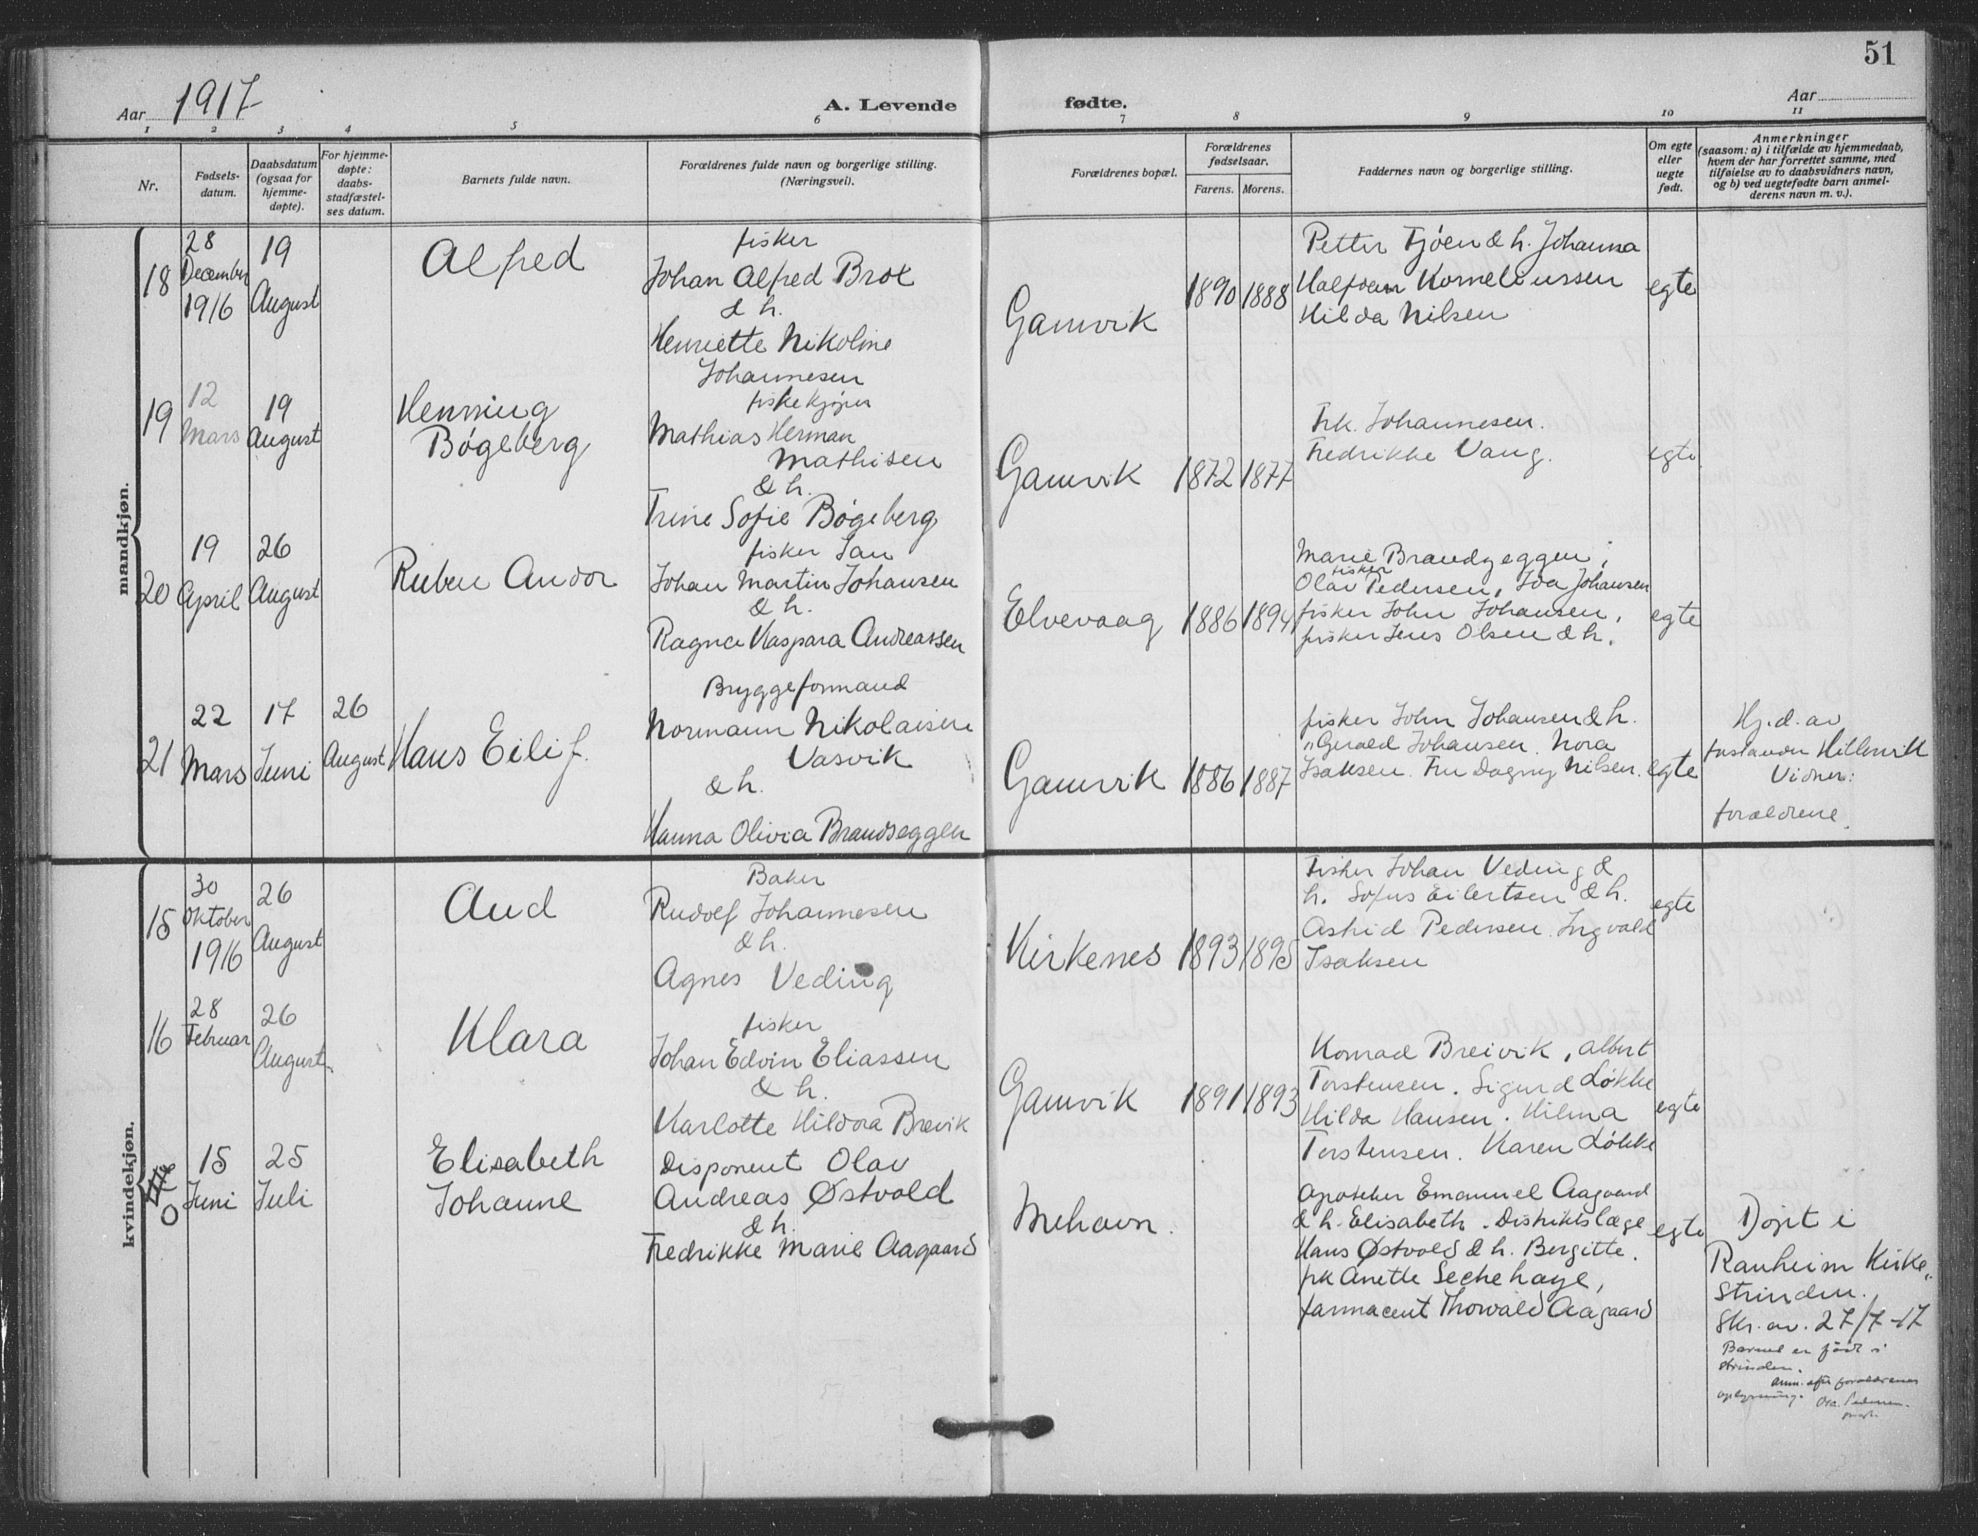 51
Aar 1917
A. Levende fødte.
Aar
1 2 3 4 5 6 7 8 9 10 11
Nr.
Fødsels-
datum.
Daabsdatum
(ogsaa for
hjemme-
døpte).
For hjemme-
døpte:
daabs-
stadfæstel-
ses datum.
Barnets fulde navn.
Forældrenes fulde navn og borgerlige stilling.
(Næringsvei).
Forældrenes bopæl.
Forældrenes
fødselsaar.
Farens. Morens.
Faddernes navn og borgerlige stilling.
Om egte
eller
uegte
født.
Anmerkninger
(saasom: a) i tilfælde av hjemmedaab,
hvem der har forrettet samme, med
tilføielse av to daabsvidners navn,
og b) ved uegtefødte barn anmel-
derens navn m. v.).
mandkjøn.
18
28
December
1916
19
August
Alfred
fisker
Johan Alfred Brox
& h.
Henriette Nikoline
Johannesen
Gamvik
1890 1888
Petter Fjøen & h. Johanna
Halfdan Korneliussen
Hilda Nilsen
egte
19
12
Mars
19
August
Henning
Bøgeberg
fiskekjøper
Mathias Herman
Mathisen
& h.
Trine Sofie Bøgeberg
Gamvik
1872 1877
Frk. Johannesen.
Fredrikke Vang.
egte
20
19
April
26
August
Ruben Andor
fisker Jan
Johan Martin Johansen
& h.
Ragna Kaspara Andreassen
Elvevaag
1886 1894
Marie Brandseggen,
fisker
Olav Pedersen, Ida Johansen
fisker John Johansen,
fisker Jens Olsen & h.
egte
21
22
Mars
17
Juni
26
August
Hans Eilif
Bryggeformand
Normann Nikolaisen
Vasvik
& h.
Hanna Olivia Brandseggen
Gamvik
1886 1887
fisker John Johansen & h.
" Gerald Johansen. Nora
Isaksen. Fru Dagny Nilsen.
egte
Hj. d. av
Hillervik
Vidner:
forældrene.
kvindekjøn.
15
30
Oktober
1916
26
August
Aud
Baker
Rudolf Johannesen
& h.
Agnes Veding
Kirkenes
1893 1895
Fisker Johan Veding &
h. Sofus Eilertsen & h.
Astrid Pedersen. Ingvald
Isaksen
egte
16
28
Februar
26
August
Klara
fisker
Johan Edvin Eliassen
& h.
Karlotte Hildora Brevik
Gamvik
1891 1893
Konrad Breivik, Albert
Torstensen. Sigurd Løkke
Hilda Hansen. Hilma
Torstensen. Karen Løkke
egte
0
15
Juni
25
Juli
Elisabeth
Johanne
Disponent Olav
Andreas Østvold
& h.
Fredrikke Marie Aagaard
Mehavn.
Apoteker Emanuel Aagaard
& h. Elisabeth. Distriktslæge
Hans Østvold & h. Bergitte.
frk Anette Sechehaye,
farmaceut Thorvald Aagaard
egte
Døpt i
Ranheim Kirke,
Strinden.
Skr. av. 27/7-17
Barnet er født i
Strinden.
Anm. efter forældrenes
oplysning. Pedersen.